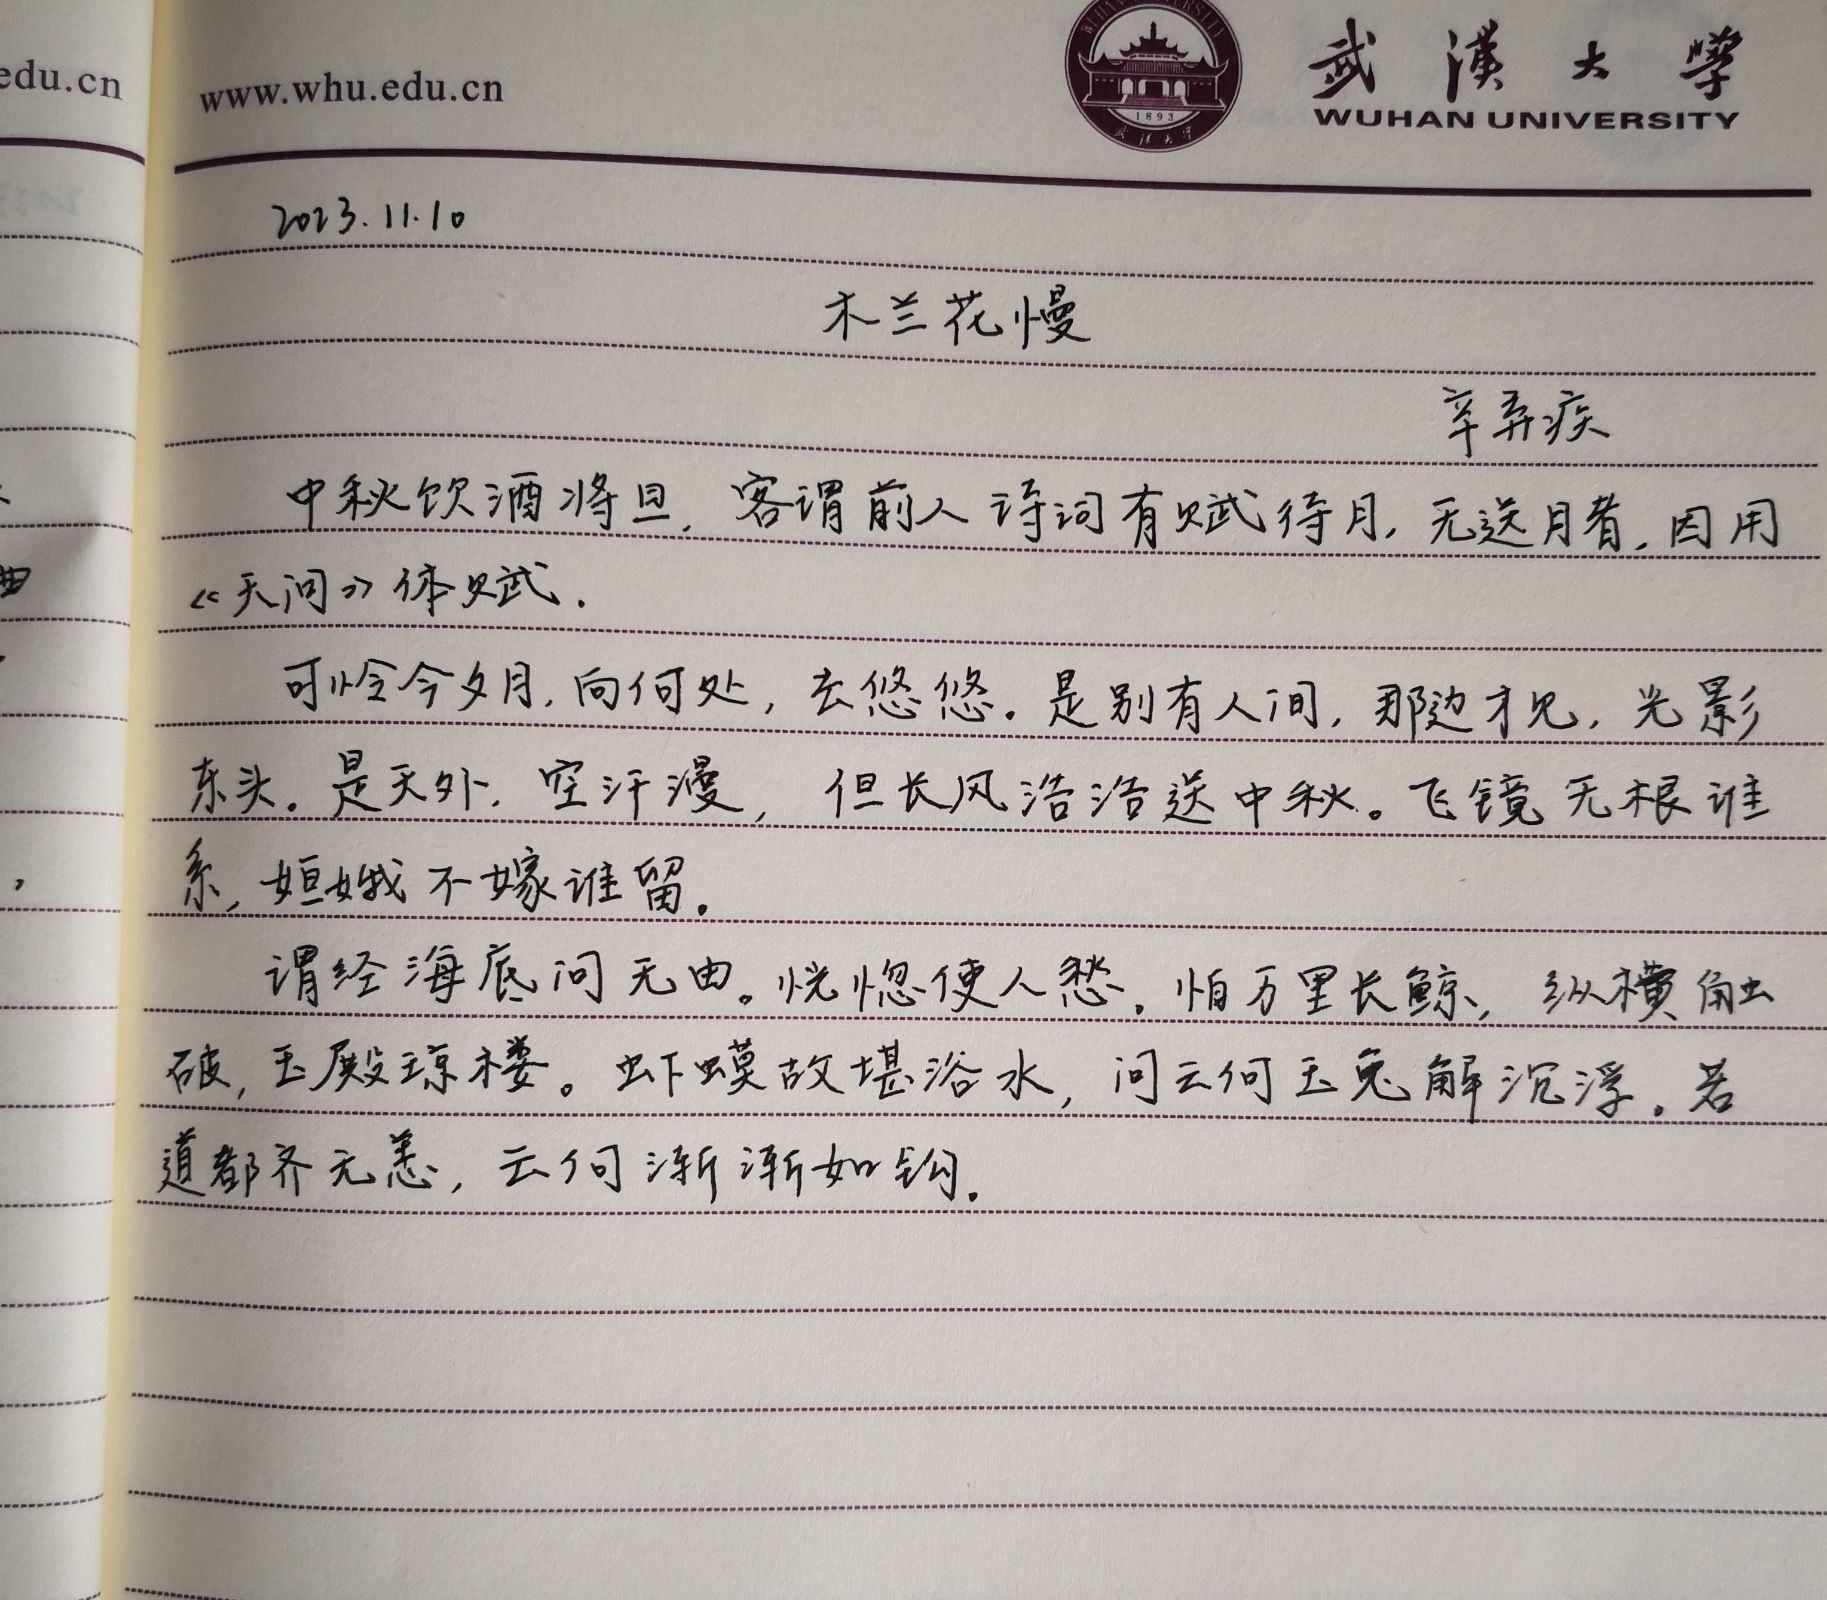 edu.cn
www.whu.edu.cn
WUHAN UNIVERSITY
1893
武汉大学
武漢大學
WUHAN UNIVERSITY
2023.11.10
木兰花慢
辛弃疾
中秋饮酒将旦,客谓前人诗词有赋待月,无送月者,因用
《天问》体赋.
可怜今夕月,向何处,去悠悠。是别有人间,那边才见,光影
东头。是天外,空汗漫,但长风浩浩送中秋。飞镜无根谁
系,姮娥不嫁谁留。
谓经海底问无由。恍惚使人愁。怕万里长鲸,纵横触
破,玉殿琼楼。虾蟆故堪浴水,问云何玉兔解沉浮。若
道都齐无恙,云何渐渐如钩。